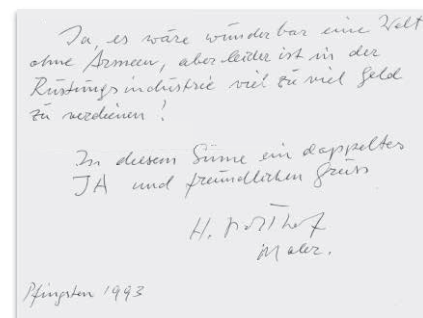 Ja, es wäre wunderbar eine Welt
ohne Armeen, aber leider ist in der
Rüstungsindustrie viel zu viel Geld
zu verdienen!
In diesem Sinne ein doppeltes
JA und freundlichen Gruss
H. Potthof
Maler.
Pfingsten 1993